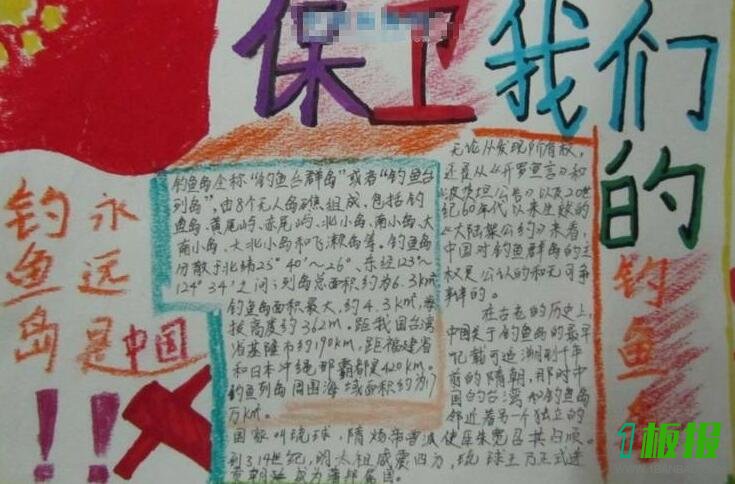 保卫我们
的
钓鱼
永远是中国
钓鱼岛
!!
钓鱼岛全称"钓鱼台群岛"或者"钓鱼台
列岛",由8个无人岛礁组成,包括钓
鱼岛、黄尾屿、赤尾屿、北小岛、南小岛、大
南小岛、大北小岛和飞濑岛等。钓鱼岛
分散于北纬25°40′~26°、东经123°~
124°34′之间:列岛总面积约为6.3km²,
钓鱼岛面积最大,约4.3km²,海
拔高度约362m。距我国台湾
省基隆市约190km,距福建省
和日本冲绳那霸都是420km。
钓鱼列岛周围海域面积约为17
万km²。
无论从发现所有权,
还是从《开罗宣言》和
《波茨坦公告》以及20世
纪60年代以来生效的
《大陆架公约》来看,
中国对钓鱼群岛的主
权是公认的和无可争
辩的。
在古老的历史上,
中国关于钓鱼岛的最早
记载可追溯到千年
前的隋朝,那时中
国的台湾和钓鱼岛
邻近着另一个独立的
国家叫琉球,隋炀帝曾派使臣朱宽召其归顺。
到14世纪,明太祖威震四方,琉球王乃正式
成为藩邦属国。
1板报
WWW.1BANBAO.COM